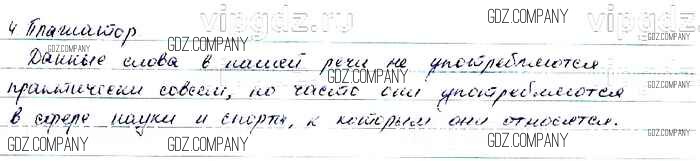 vipgdz.ru vipgdz.ru
4 Плагиатор
GDZ.COMPANY GDZ.COMPANY GDZ.COMPANY
Данные слова в нашей речи не употребляются
GDZ.COMPANY GDZ.COMPANY GDZ.COMPANY
практически совсем, но часто они употребляются
GDZ.COMPANY GDZ.COMPANY GDZ.COMPANY
в сфере науки и спорта, к которым они относятся.
GDZ.COMPANY GDZ.COMPANY GDZ.COMPANY